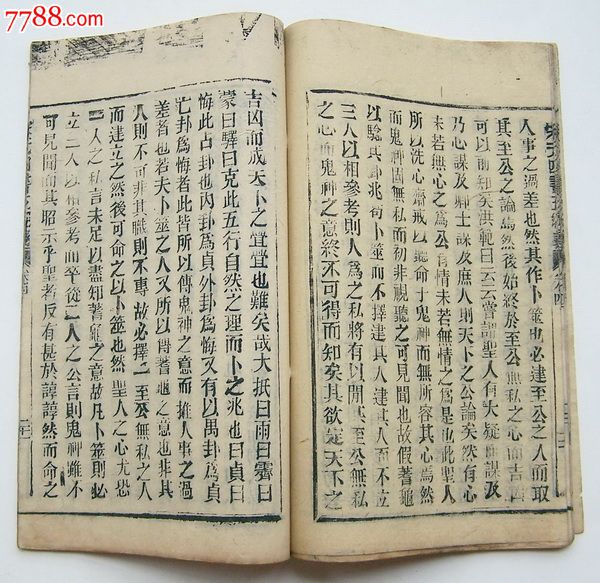 7788.com
人事之過差也然其作卜筮也必建至公之人而取
其至公之論焉然後始終於至公無私之心而吉凶
可以前知矣洪範曰云云嘗謂聖人有大疑旣謀及
乃心謀及卿士謀及庶人則天下之公論矣然有心
未若無心之爲公有情未若無情之爲是也此聖人
所以洗心齋戒以聽命于鬼神而無所容其心焉然
鬼神固無私而初非視聽之可見聞也故假蓍龜
以驗其卦兆以卜筮而不擇建其人建其人而不立
三人以相參考則人爲之私將有以間其至公無私
之心而鬼神之意終不可得而知矣其欲定天下之
吉凶而成天下之亹亹也難矣哉大抵曰雨曰霽曰
蒙曰驛曰克此五行自然之理而卜之兆也曰貞曰
悔此占卦也内卦爲貞外卦爲悔又有以遇卦爲貞
之卦爲悔者此皆所以傳鬼神之意而推人事之過
差者也若夫卜筮之人又所以傳蓍龜之意也非其
人則不可非其職則不專故必擇至公無私之人
而建立之然後可命之以卜筮也然聖人之心尤恐
一人之私言未足以盡知蓍龜之意故凡卜筮則必
立三人以相參考而卒從二人之公言則鬼神雖不
可見聞而其昭示乎聖者反有甚於諄諄然而命之